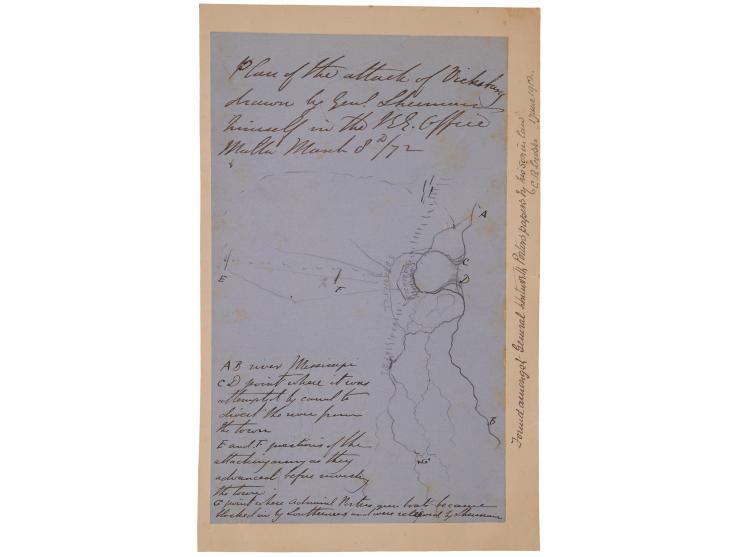 Plan of the attack of Vicksburg
drawn by Genl. Sherman
himself in the R.E. Office
Malta March 8th/72
A
C
D
E
F
B
G
A B river Mississipi
C D point where it was
attempted by canal to
divert the river from
the town
E and F positions of the
attacking army as they
advanced before investing
the town
G point where Admiral Porters gun boat became
blocked in by Southerners and were relieved by Sherman
Found amongst General Porter's papers by his son in law
C.B. June 1902.